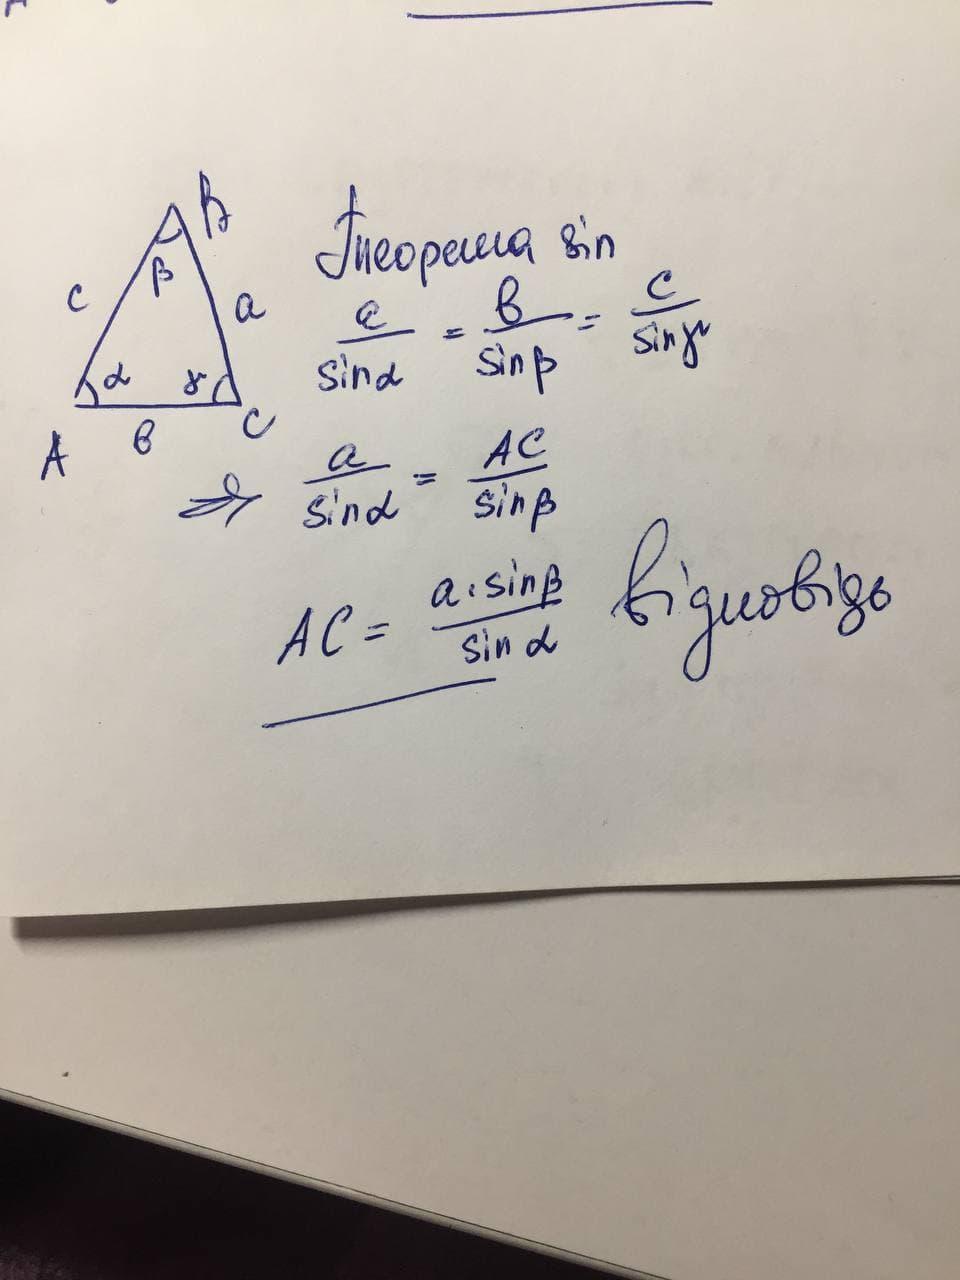 B
β
c
a
α
γ
A
b
C
Теорема sin
a/sinα = b/sinβ = c/sinγ
⇒ a/sinα = AC/sinβ
AC = a·sinβ/sinα Відповідь